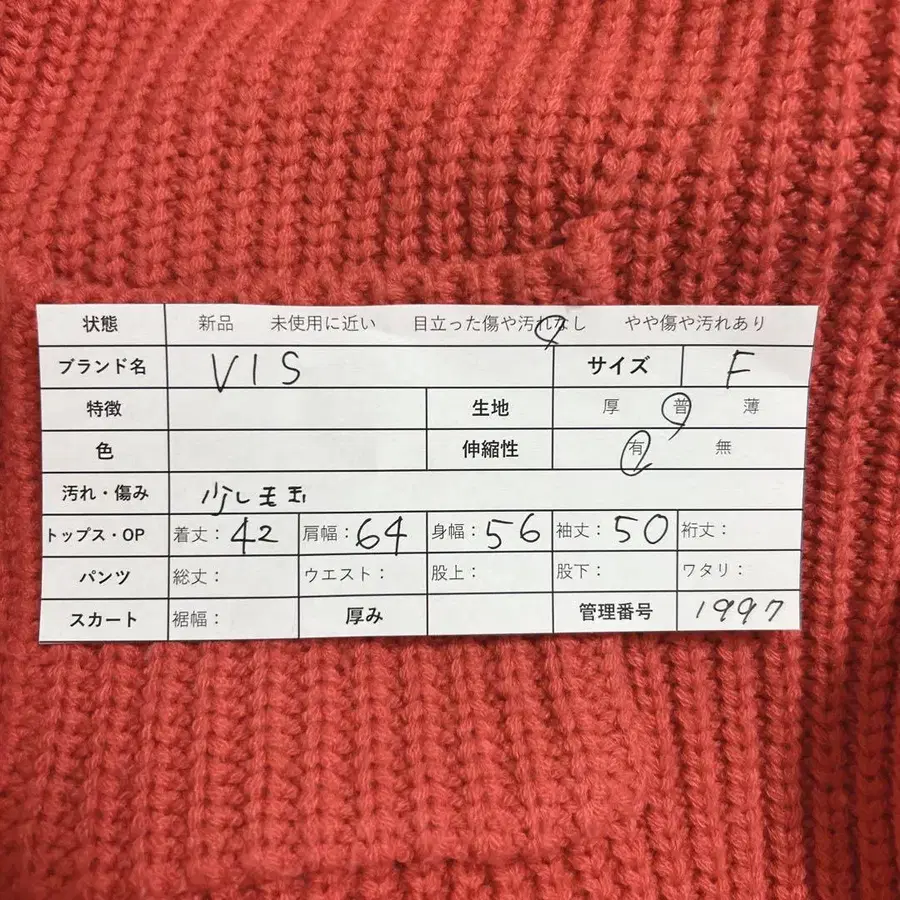 状態 新品 未使用に近い 目立った傷や汚れなし やや傷や汚れあり
ブランド名 VIS サイズ F
特徴 生地 厚 普 薄
色 伸縮性 有 無
汚れ・傷み 少し毛玉
トップス・OP 着丈: 42 肩幅: 64 身幅: 56 袖丈: 50 裄丈:
パンツ 総丈: ウエスト: 股上: 股下: ワタリ:
スカート 裾幅: 厚み 管理番号 1997